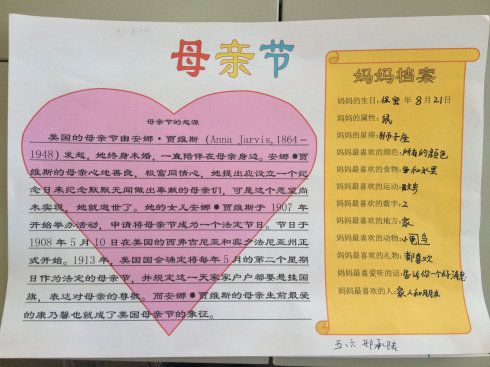 母亲节
母亲节的起源
美国的母亲节由安娜·贾维斯 (Anna Jarvis,1864-
1948) 发起，她终身未婚，一直陪伴在母亲身边。安娜●贾
维斯的母亲心地善良，极富同情心，她提出应设立一个纪
念日来纪念默默无闻做出奉献的母亲们，可是这个愿望尚
未实现，她就逝世了。她的女儿安娜●贾维斯于 1907 年
开始举办活动，申请将母亲节成为一个法定节日。节日于
1908 年 5 月 10 日在美国的西弗吉尼亚和宾夕法尼亚州正
式开始。1913 年，美国国会确定将每年 5 月的第二个星期
日作为法定的母亲节，并规定这一天家家户户都要悬挂国
旗，表达对母亲的尊敬。而安娜●贾维斯的母亲生前最爱
的康乃馨也就成了美国母亲节的象征。
妈妈档案
妈妈的生日:保密 年 8 月 21 日
妈妈的属性:鼠
妈妈的星座:狮子座
妈妈最喜欢的颜色:所有的颜色
妈妈最喜欢的食物:鱼和水果
妈妈最喜欢的运动:散步
妈妈最喜欢的数字:2
妈妈最喜欢的地方:家
妈妈最喜欢的动物:小鸟
妈妈最喜欢的礼物:都喜欢
妈妈最喜爱听的话:告诉你一个好消息
妈妈最喜欢的人:家人和朋友
五.六 邢承